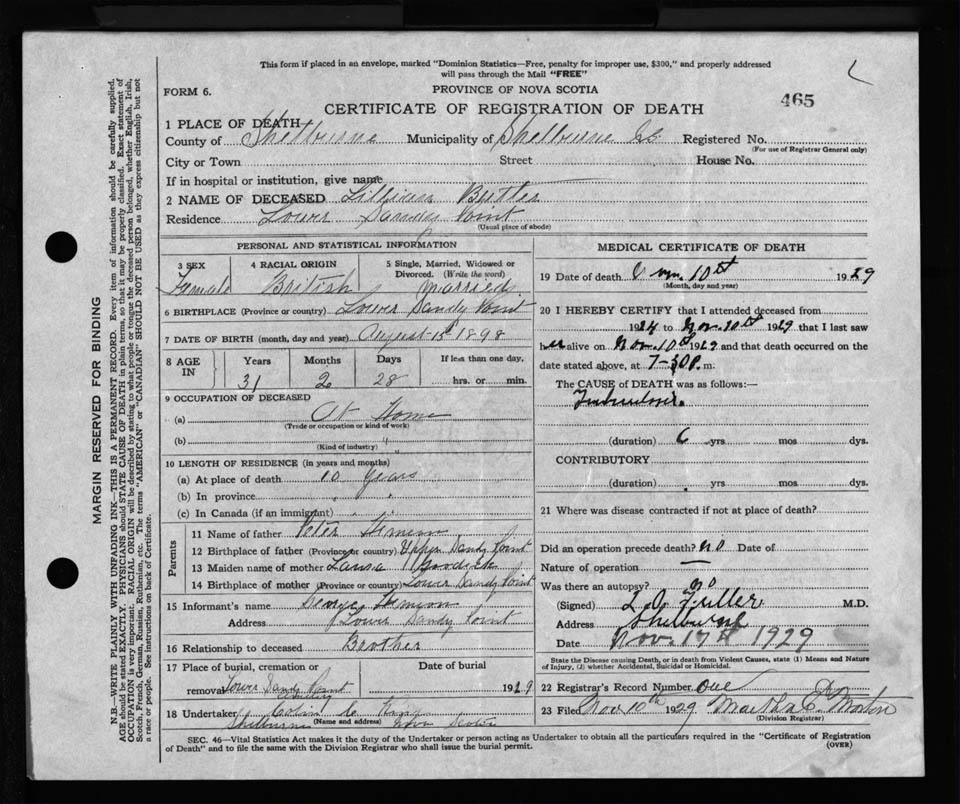 This form if placed in an envelope, marked "Dominion Statistics—Free, penalty for improper use, $300," and properly addressed
will pass through the Mail "FREE"
FORM 6.
PROVINCE OF NOVA SCOTIA
465
CERTIFICATE OF REGISTRATION OF DEATH
1 PLACE OF DEATH—
County of Shelburne Municipality of Shelburne Co. Registered No.
(For use of Registrar General only)
City or Town Street House No.
If in hospital or institution, give name
2 NAME OF DECEASED Lillian Butler
Residence Lower Sandy Point
(Usual place of abode)
PERSONAL AND STATISTICAL INFORMATION
3 SEX 4 RACIAL ORIGIN 5 Single, Married, Widowed or
Divorced. (Write the word)
Female British Married
6 BIRTHPLACE (Province or country) Lower Sandy Point
7 DATE OF BIRTH (month, day and year) August 1898
8 AGE IN Years Months Days If less than one day,
31 2 28 hrs. or min.
9 OCCUPATION OF DECEASED
(a) At Home
(Trade or occupation or kind of work)
(b) "
(Kind of industry)
10 LENGTH OF RESIDENCE (in years and months)
(a) At place of death 10 Years
(b) In province " "
(c) In Canada (if an immigrant) " "
Parents
11 Name of father Peter
12 Birthplace of father (Province or country) Upper Sandy Point
13 Maiden name of mother Laura
14 Birthplace of mother (Province or country) Lower Sandy Point
15 Informant's name George
Address Lower Sandy Point
16 Relationship to deceased Brother
17 Place of burial, cremation or Date of burial
removal Lower Sandy Point 1929
Cemetery
18 Undertaker
Shelburne (Name and address) Nova Scotia
MEDICAL CERTIFICATE OF DEATH
19 Date of death 10th 1929
(Month, day and year)
20 I HEREBY CERTIFY that I attended deceased from
1924 to Nov. 10th 1929 that I last saw
her alive on Nov. 10th 1929 and that death occurred on the
date stated above, at 7-30 P. m.
The CAUSE of DEATH was as follows:—
(duration) 6 yrs mos dys.
CONTRIBUTORY
(duration) yrs mos dys.
21 Where was disease contracted if not at place of death?
Did an operation precede death? no Date of
Nature of operation —
Was there an autopsy? no
(Signed) L. O. Fuller M.D.
Address Shelburne
Date Nov. 17th 1929
State the Disease causing Death, or in death from Violent Causes, state (1) Means and Nature
of Injury, (2) whether Accidental, Suicidal or Homicidal.
22 Registrar's Record Number One
23 Filed Nov 10th 1929 Martha E. Morton
(Division Registrar)
SEC. 46—Vital Statistics Act makes it the duty of the Undertaker or person acting as Undertaker to obtain all the particulars required in the "Certificate of Registration
of Death" and to file the same with the Division Registrar who shall issue the burial permit.
(OVER)
MARGIN RESERVED FOR BINDING
N.B.—WRITE PLAINLY WITH UNFADING INK—THIS IS A PERMANENT RECORD. Every item of information should be carefully supplied.
AGE should be stated EXACTLY. PHYSICIANS should STATE CAUSE OF DEATH in plain terms, so that it may be properly classified. Exact statement of
OCCUPATION is very important. RACIAL ORIGIN will be described by stating to what people or tongue the deceased person belonged, whether English, Irish,
Scotch, French, German, Russian, Ruthenian, etc. The terms "AMERICAN" or "CANADIAN" SHOULD NOT BE USED as they express citizenship but not
a race or people. See instructions on back of Certificate.